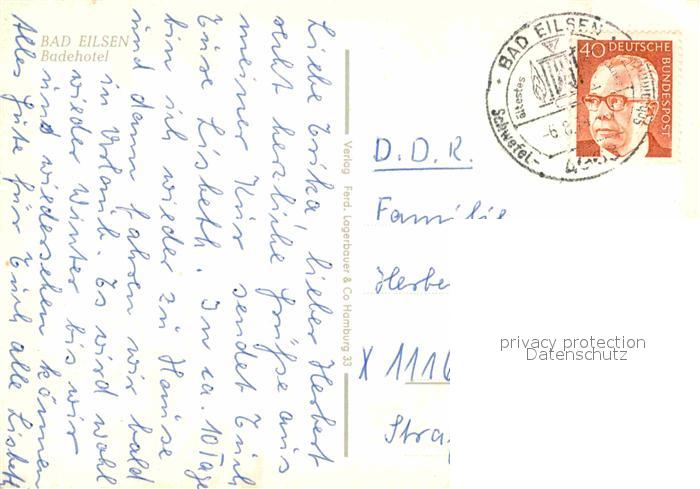 BAD EILSEN
Badehotel
Liebe Erika lieber Herbert
recht herzliche Grüße aus
meiner Kur sendet Euch
Eure Lisbeth. In ca. 10 Tage
bin ich wieder zu Hause
und dann fahren wir bald
in Urlaub. Es wird wohl
wieder Winter bis wir
uns wiedersehen können
Alles Gute für Euch alle Lisbeth
Verlag Ferd. Lagerbauer & Co Hamburg 33
BAD EILSEN
ältestes
Schwefel-
40 DEUTSCHE
BUNDESPOST
D.D.R.
Familie
Herbe
X 1116
Straß
privacy protection
Datenschutz